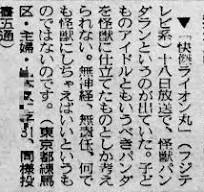 ▼「快傑ライオン丸」（フジテ
レビ系）十八日放送で、怪獣パン
ダランというのが出ていた。子ど
ものアイドルともいうべきパンダ
を怪獣に仕立てたものとしか考え
られない。無神経、無責任、何で
も怪獣にしちゃえばいいというも
のではないのです。（東京都練馬
区・主婦・同様投
書五通）